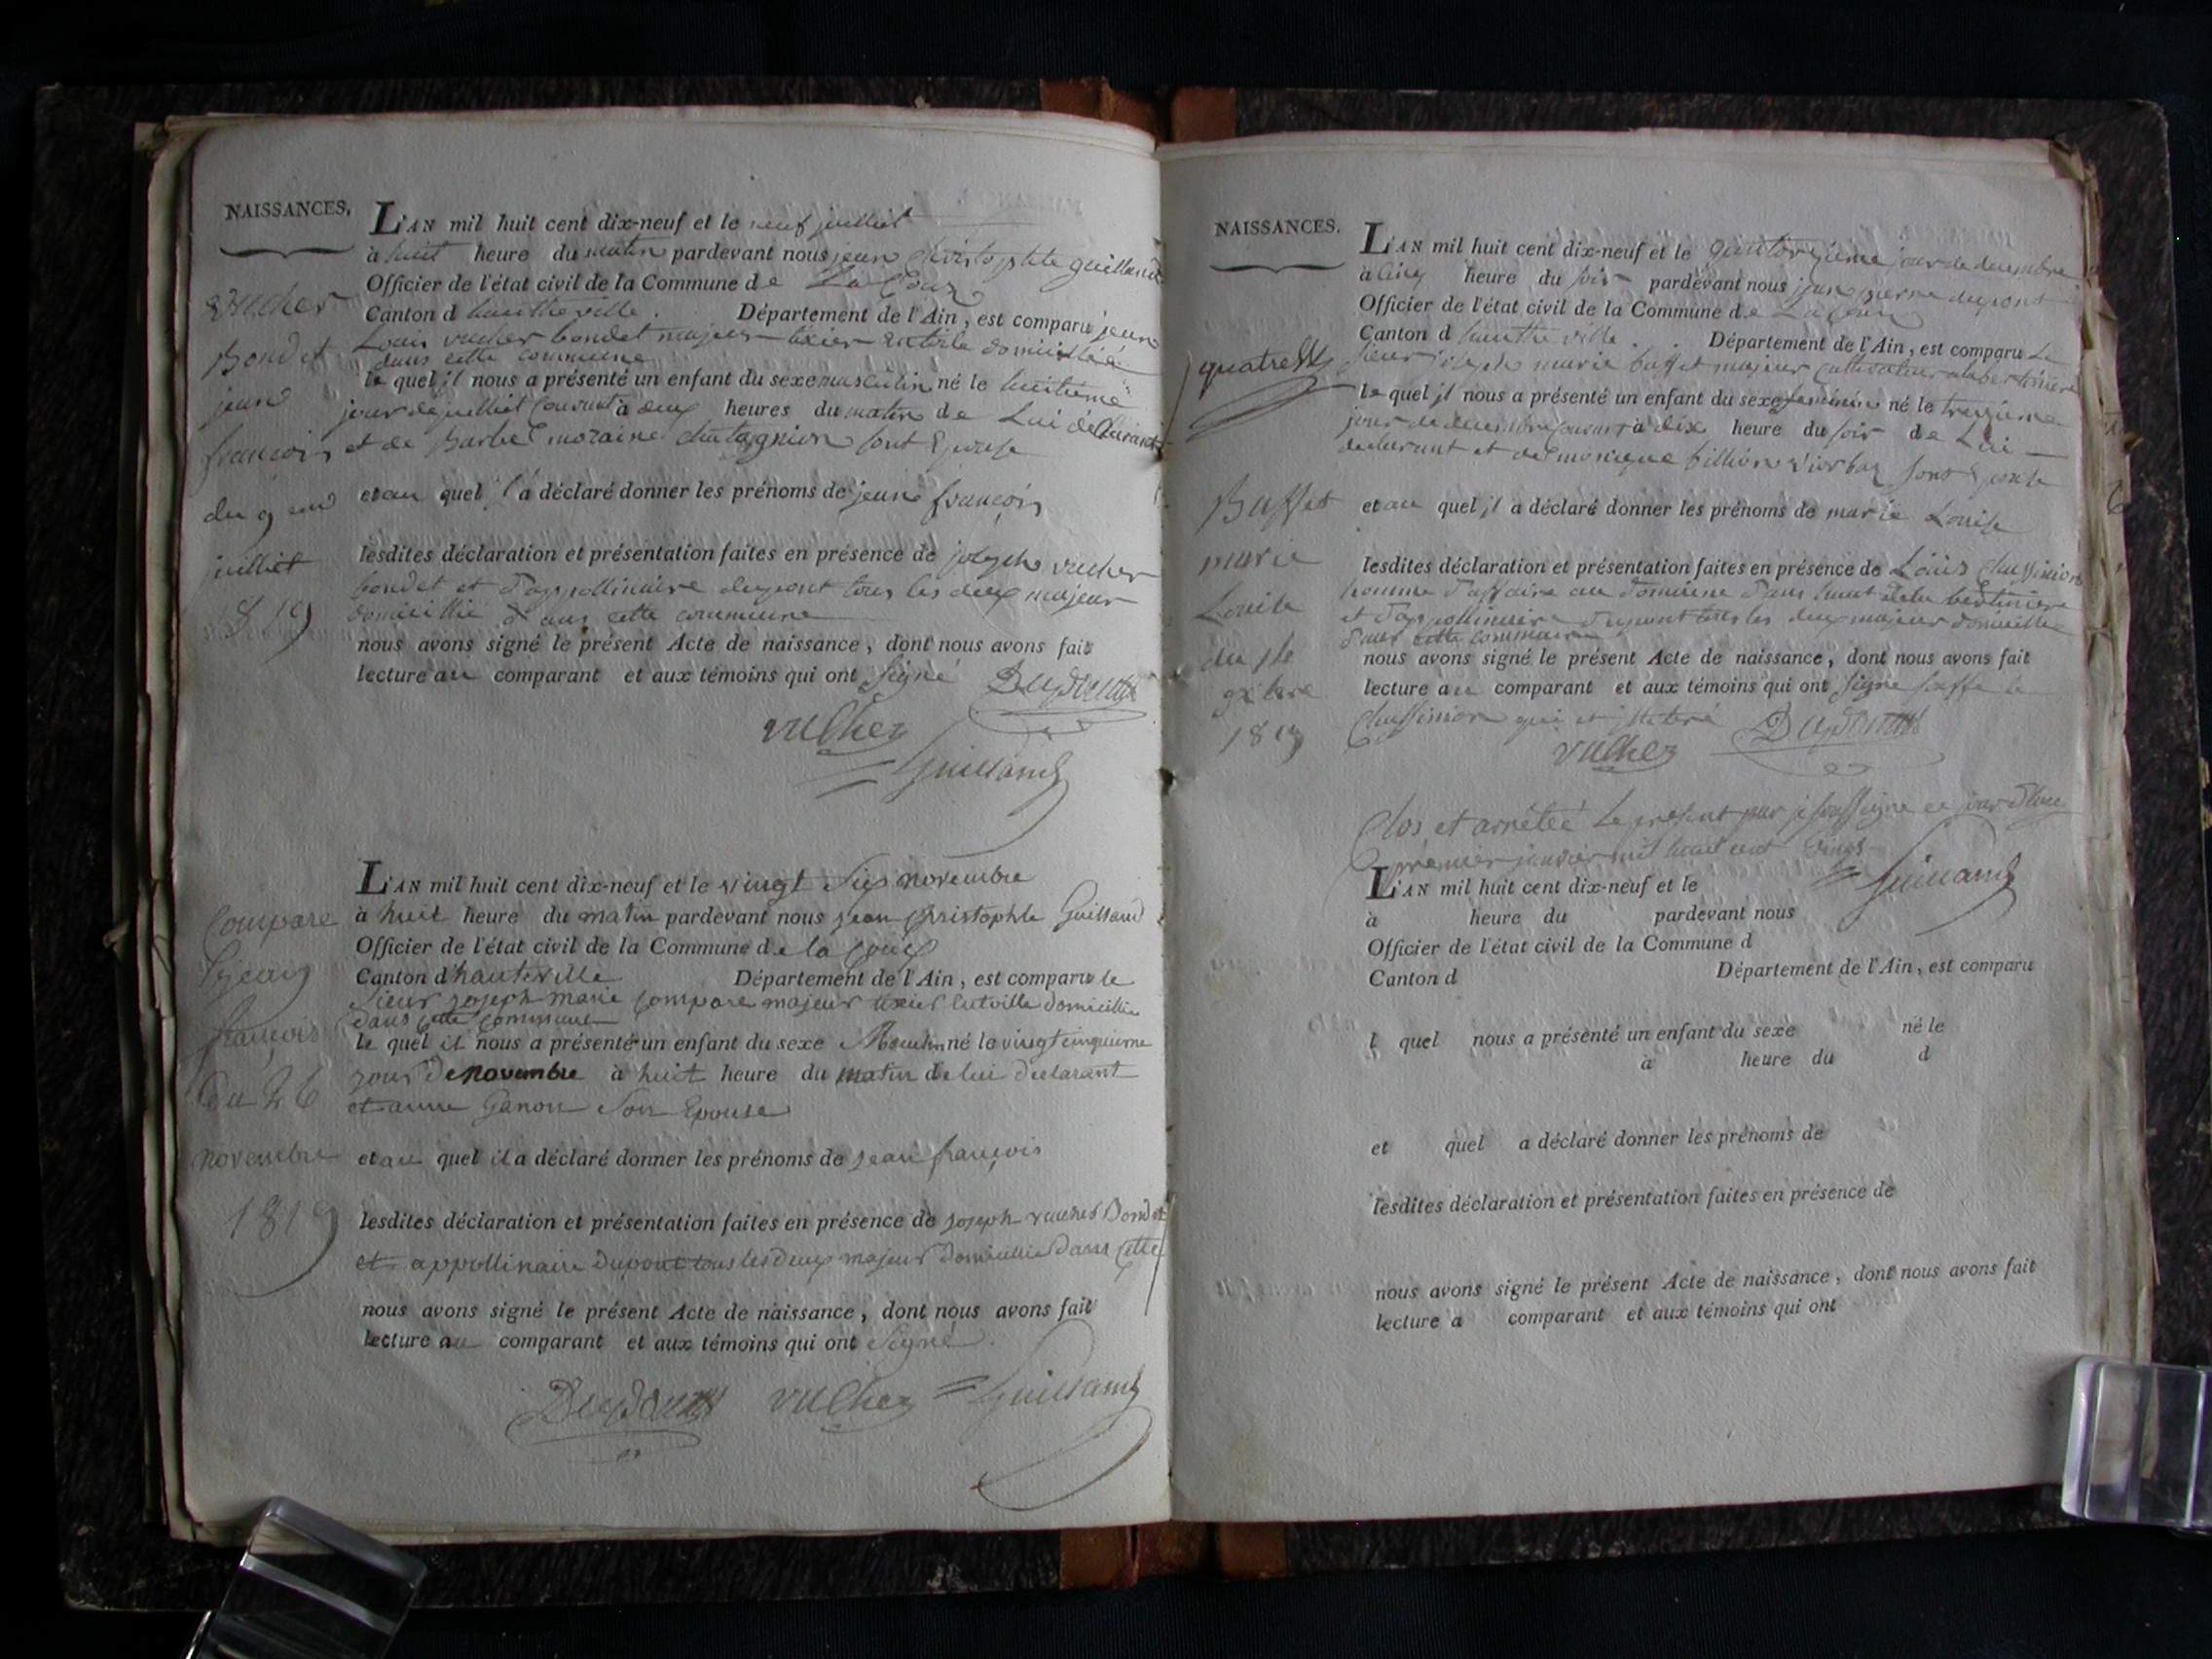 NAISSANCES.
L'AN mil huit cent dix-neuf et le neuf juilliet
à huit heure du matin pardevant nous jean christophle guilland
Officier de l'état civil de la Commune de La Coux
Canton d hautheville . Département de l'Ain, est comparu jean
Louis vucher bondet majeur tixier domicilié
dans cette commune
le quel il nous a présenté un enfant du sexe masculin né le huitieme
jour de juilliet Courant à deux heures du matin de Lui déclarant
et de Barbe moraine chatagnion sont Epouse
et au quel il a déclaré donner les prénoms de jean françois
lesdites déclaration et présentation faites en présence de joseph vucher
bondet et d'appollinaire dupont tous les deux majeur
domicillié dans cette commune
nous avons signé le présent Acte de naissance, dont nous avons fait
lecture au comparant et aux témoins qui ont signé
Dupont
vucher
Guilland
vucher
Bondet
jean
françois
du 9
juilliet
1819
L'AN mil huit cent dix-neuf et le vingt Six novembre
à huit heure du matin pardevant nous jean christophle Guilland
Officier de l'état civil de la Commune de la Coux
Canton d'hauteville Département de l'Ain, est comparu le
Sieur joseph marie Compare majeur tixier domicillie
dans cette commune
le quel il nous a présenté un enfant du sexe né le vingt cinquieme
jour de novembre à huit heure du matin de lui declarant
et anne Ganon Son Epouse
et au quel il a déclaré donner les prénoms de jean françois
lesdites déclaration et présentation faites en présence de joseph vucher Bondet
et appollinaire dupont tous les deux majeur domicillie dans cette
nous avons signé le présent Acte de naissance, dont nous avons fait
lecture au comparant et aux témoins qui ont Signé.
Dupont vucher Guilland
Compare
jean
françois
du 26
novembre
1819
NAISSANCES.
L'AN mil huit cent dix-neuf et le quatorzieme jour de decembre
à Cinq heure du soir pardevant nous jean pierre dupont
Officier de l'état civil de la Commune de La Coux
Canton d hautheville . . Département de l'Ain, est comparu Le
sieur joseph marie buffet majeur Cultivateur
le quel il nous a présenté un enfant du sexe feminin né le treizieme
jour de decembre Courant à dix heure du soir de Lui
declarant et de monique billion sont Epouse
et au quel il a déclaré donner les prénoms de marie Louise
lesdites déclaration et présentation faites en présence de Louis Chassinion
homme d'affaire au domaine
et d'appollinaire dupont tous les deux majeur domicillie
dans cette commune
nous avons signé le présent Acte de naissance, dont nous avons fait
lecture au comparant et aux témoins qui ont signe
Chassinion qui
vucher Dupont
Buffet
marie
Louise
du
1819
Clos et arrêtée Le present par je soussigne ce jour d'hui
premier janvier mil huit cent vingt
Guilland
L'AN mil huit cent dix-neuf et le
à heure du pardevant nous
Officier de l'état civil de la Commune d
Canton d Département de l'Ain, est comparu
l quel nous a présenté un enfant du sexe né le
à heure du d
et quel a déclaré donner les prénoms de
lesdites déclaration et présentation faites en présence de
nous avons signé le présent Acte de naissance, dont nous avons fait
lecture a comparant et aux témoins qui ont